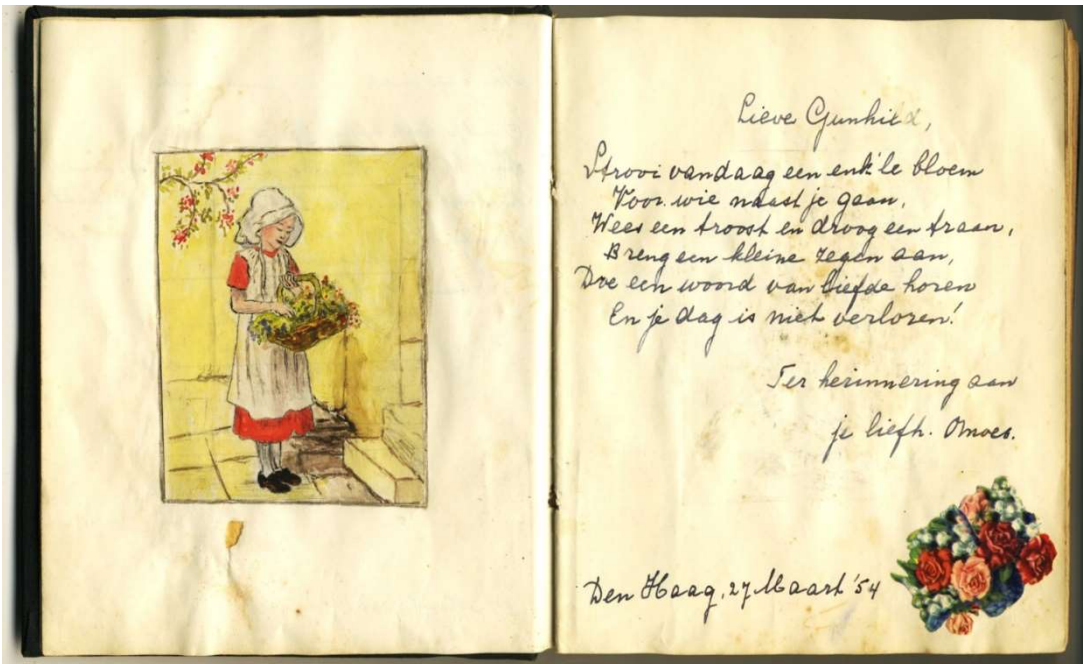 Lieve Gunhild,
Strooi vandaag een enk'le bloem
Voor wie naast je gaan,
Wees een troost en droog een traan,
Breng een kleine zegen aan,
Doe een woord van liefde horen
En je dag is niet verloren!
Ter herinnering aan
je liefh. Omoes.
Den Haag, 27 Maart '54